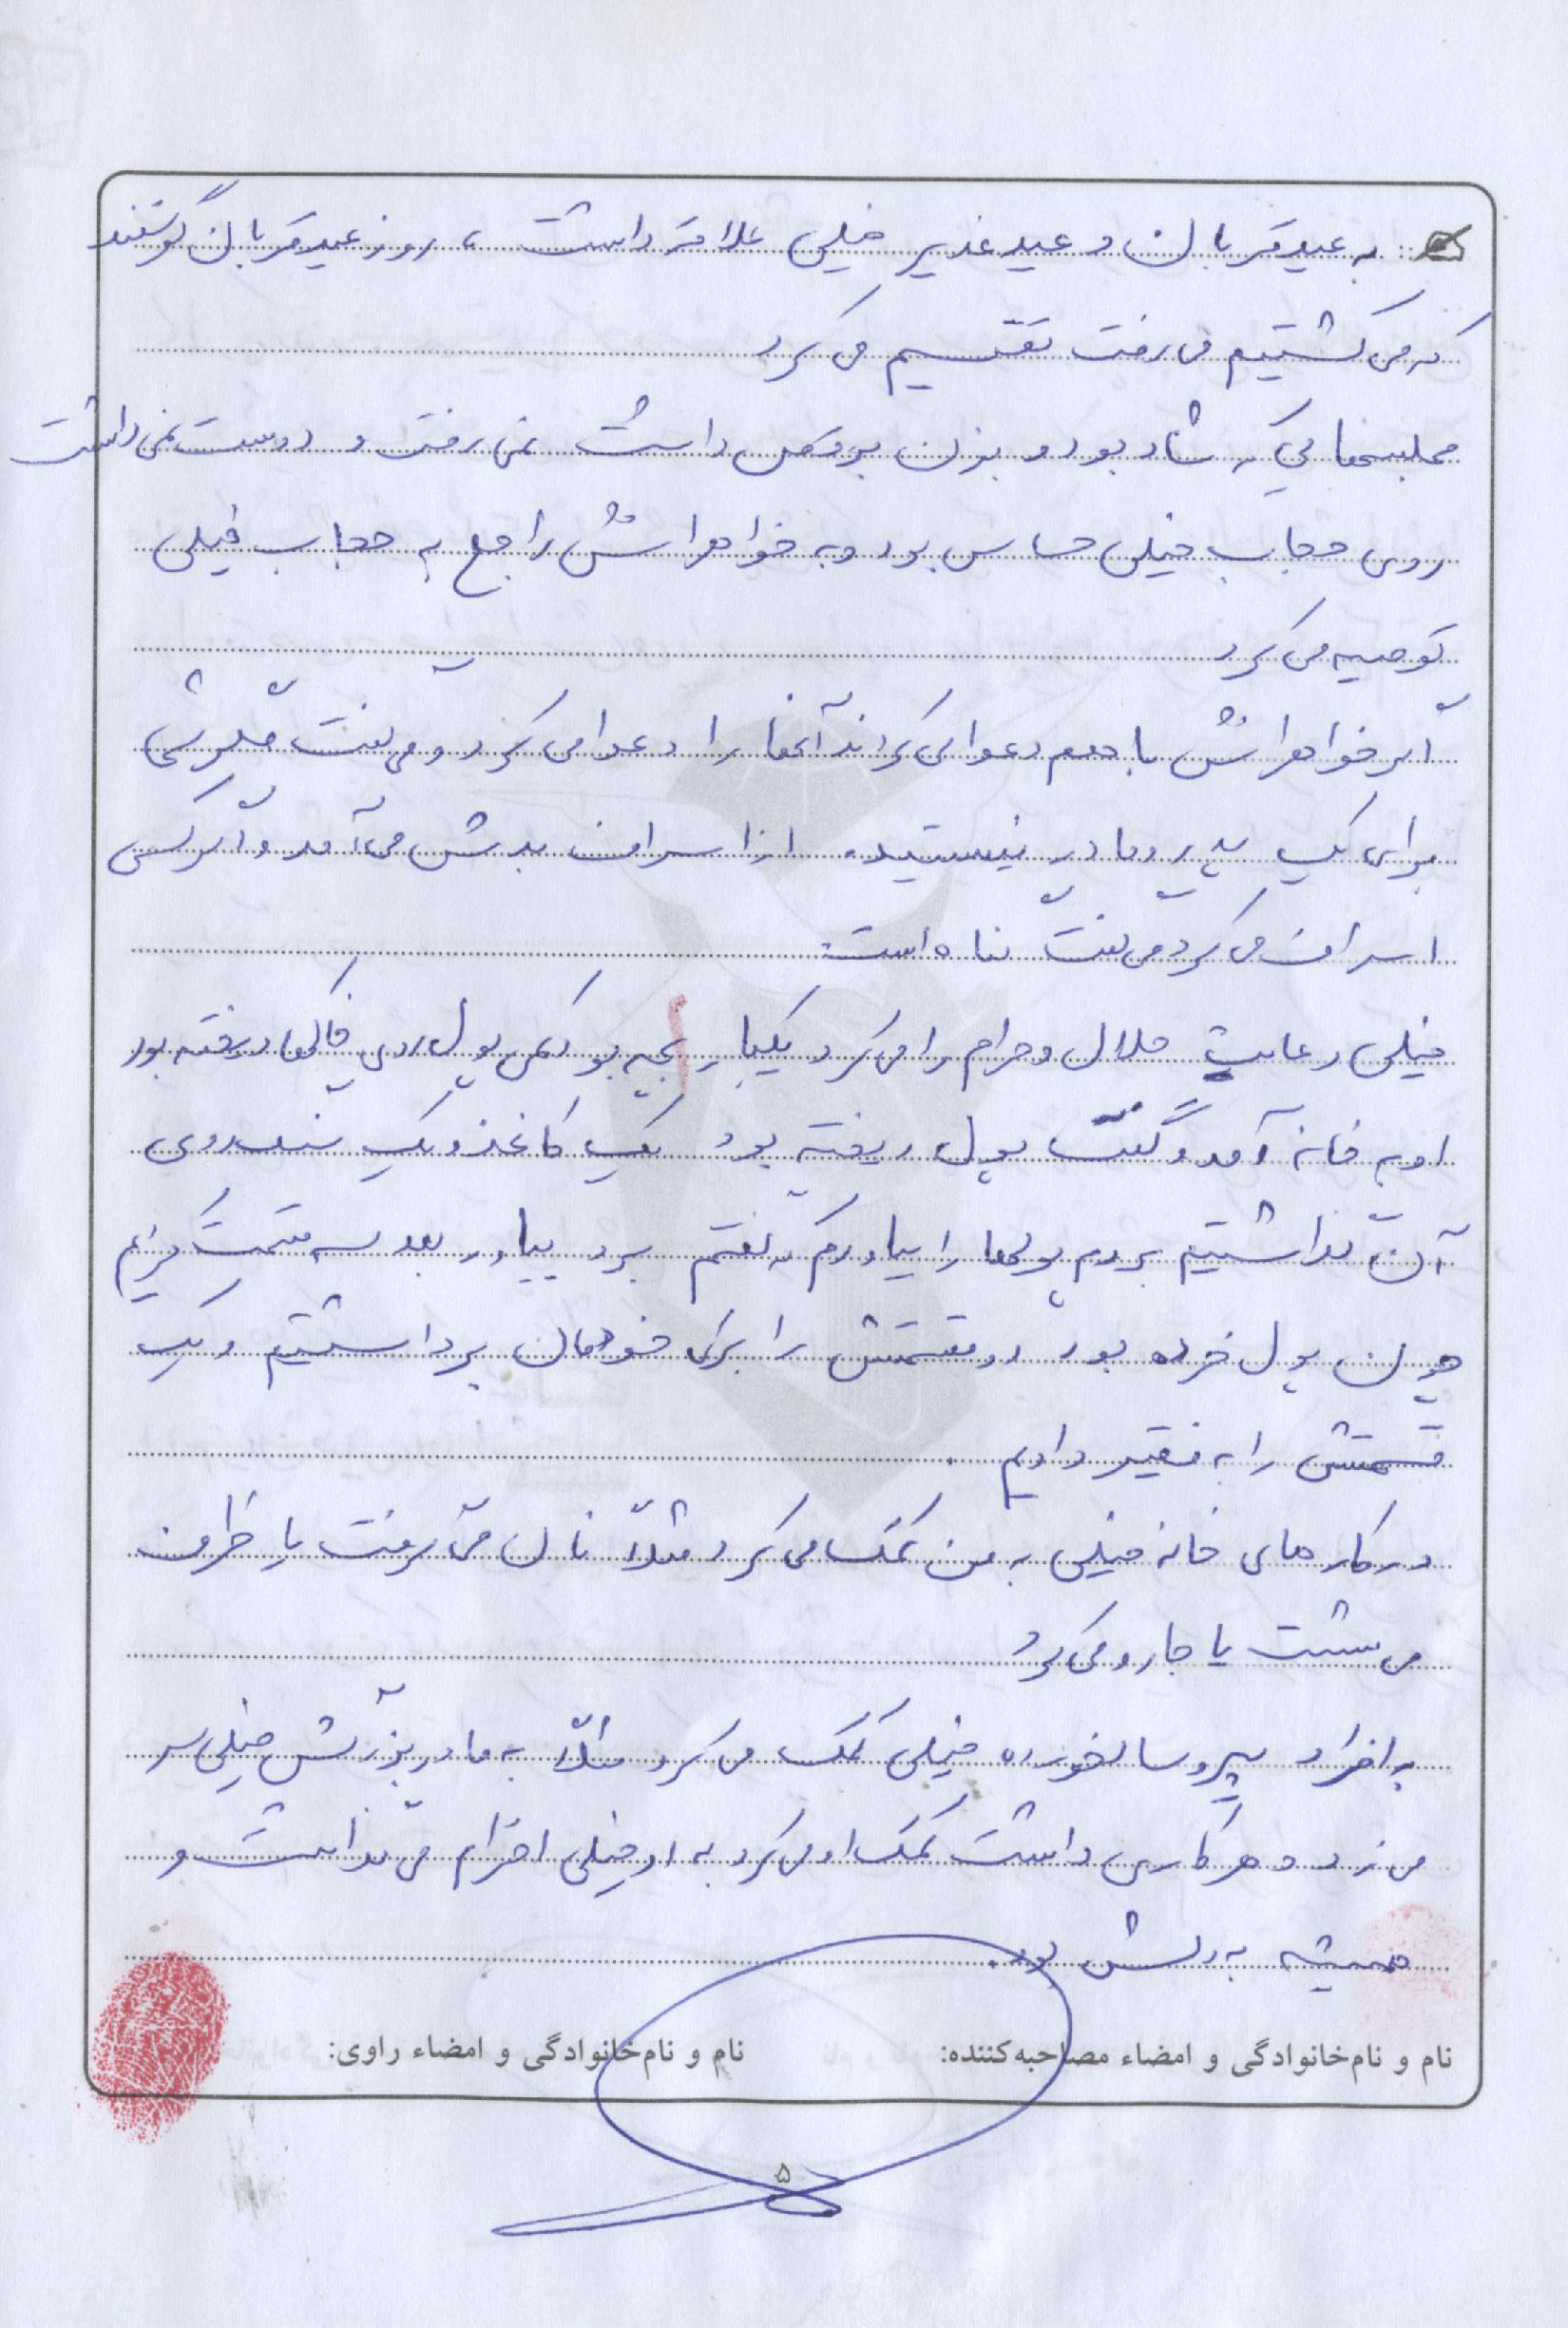 به عید قربان و عید غدیر خیلی علاقه داشت، روز عید قربان گوسفند
که می کشتیم می رفت تقسیم می کرد
مجلسهایی که شاد بود و بزن برقص داشت نمی رفت و دوست نمی داشت
روی حجاب خیلی حساس بود و به خواهرانش راجع به حجاب خیلی
توصیه می کرد
اگر خواهرانش با هم دعوا می کردند آنها را دعوا می کرد و می گفت مگر شما
برای یک پدر و مادر نیستید. از اسراف بدش می آمد و اگر کسی
اسراف می کرد می گفت گناه است.
خیلی رعایت حلال و حرام را می کرد یکبار بچه بود کمی پول روی خاکها ریخته بود
او به خانه آمد و گفت پول ریخته بود یک کاغذ و یک سنگ روی
آن گذاشتیم بروم پولها را بیاورم که گفتم برو بیاور بعد سه قسمت کردیم
چون پول خرده بود دو قسمتش را برای خودمان برداشتیم و یک
قسمتش را به فقیر دادیم.
در کارهای خانه خیلی به من کمک می کرد مثلاً نان می گرفت یا ظرف
می شست یا جارو می کرد
به افراد پیر و سالخورده خیلی کمک می کرد مثلاً به مادربزرگش خیلی سر
می زد و هر کاری داشت کمک او می کرد به او خیلی احترام می گذاشت و
همیشه به یادش بود.
نام و نام‌خانوادگی و امضاء مصاحبه‌کننده: نام و نام‌خانوادگی و امضاء راوی:
۵